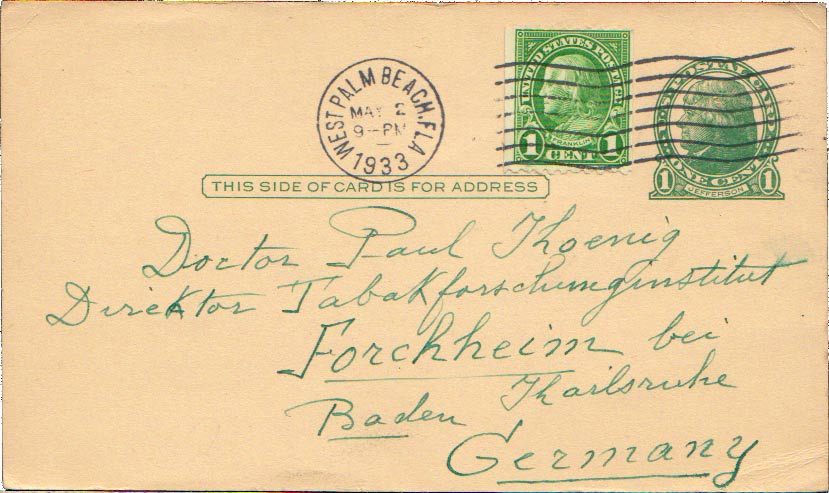 WEST PALM BEACH, FLA
MAY 2
9-PM
1933
UNITED STATES POSTAGE
FRANKLIN
1 CENT 1
ONE CENT
1 JEFFERSON 1
THIS SIDE OF CARD IS FOR ADDRESS
Doctor Paul Khoenig
Direktor Tabakforschunginstitut
Forchheim bei
Baden Kharlsruhe
Germany